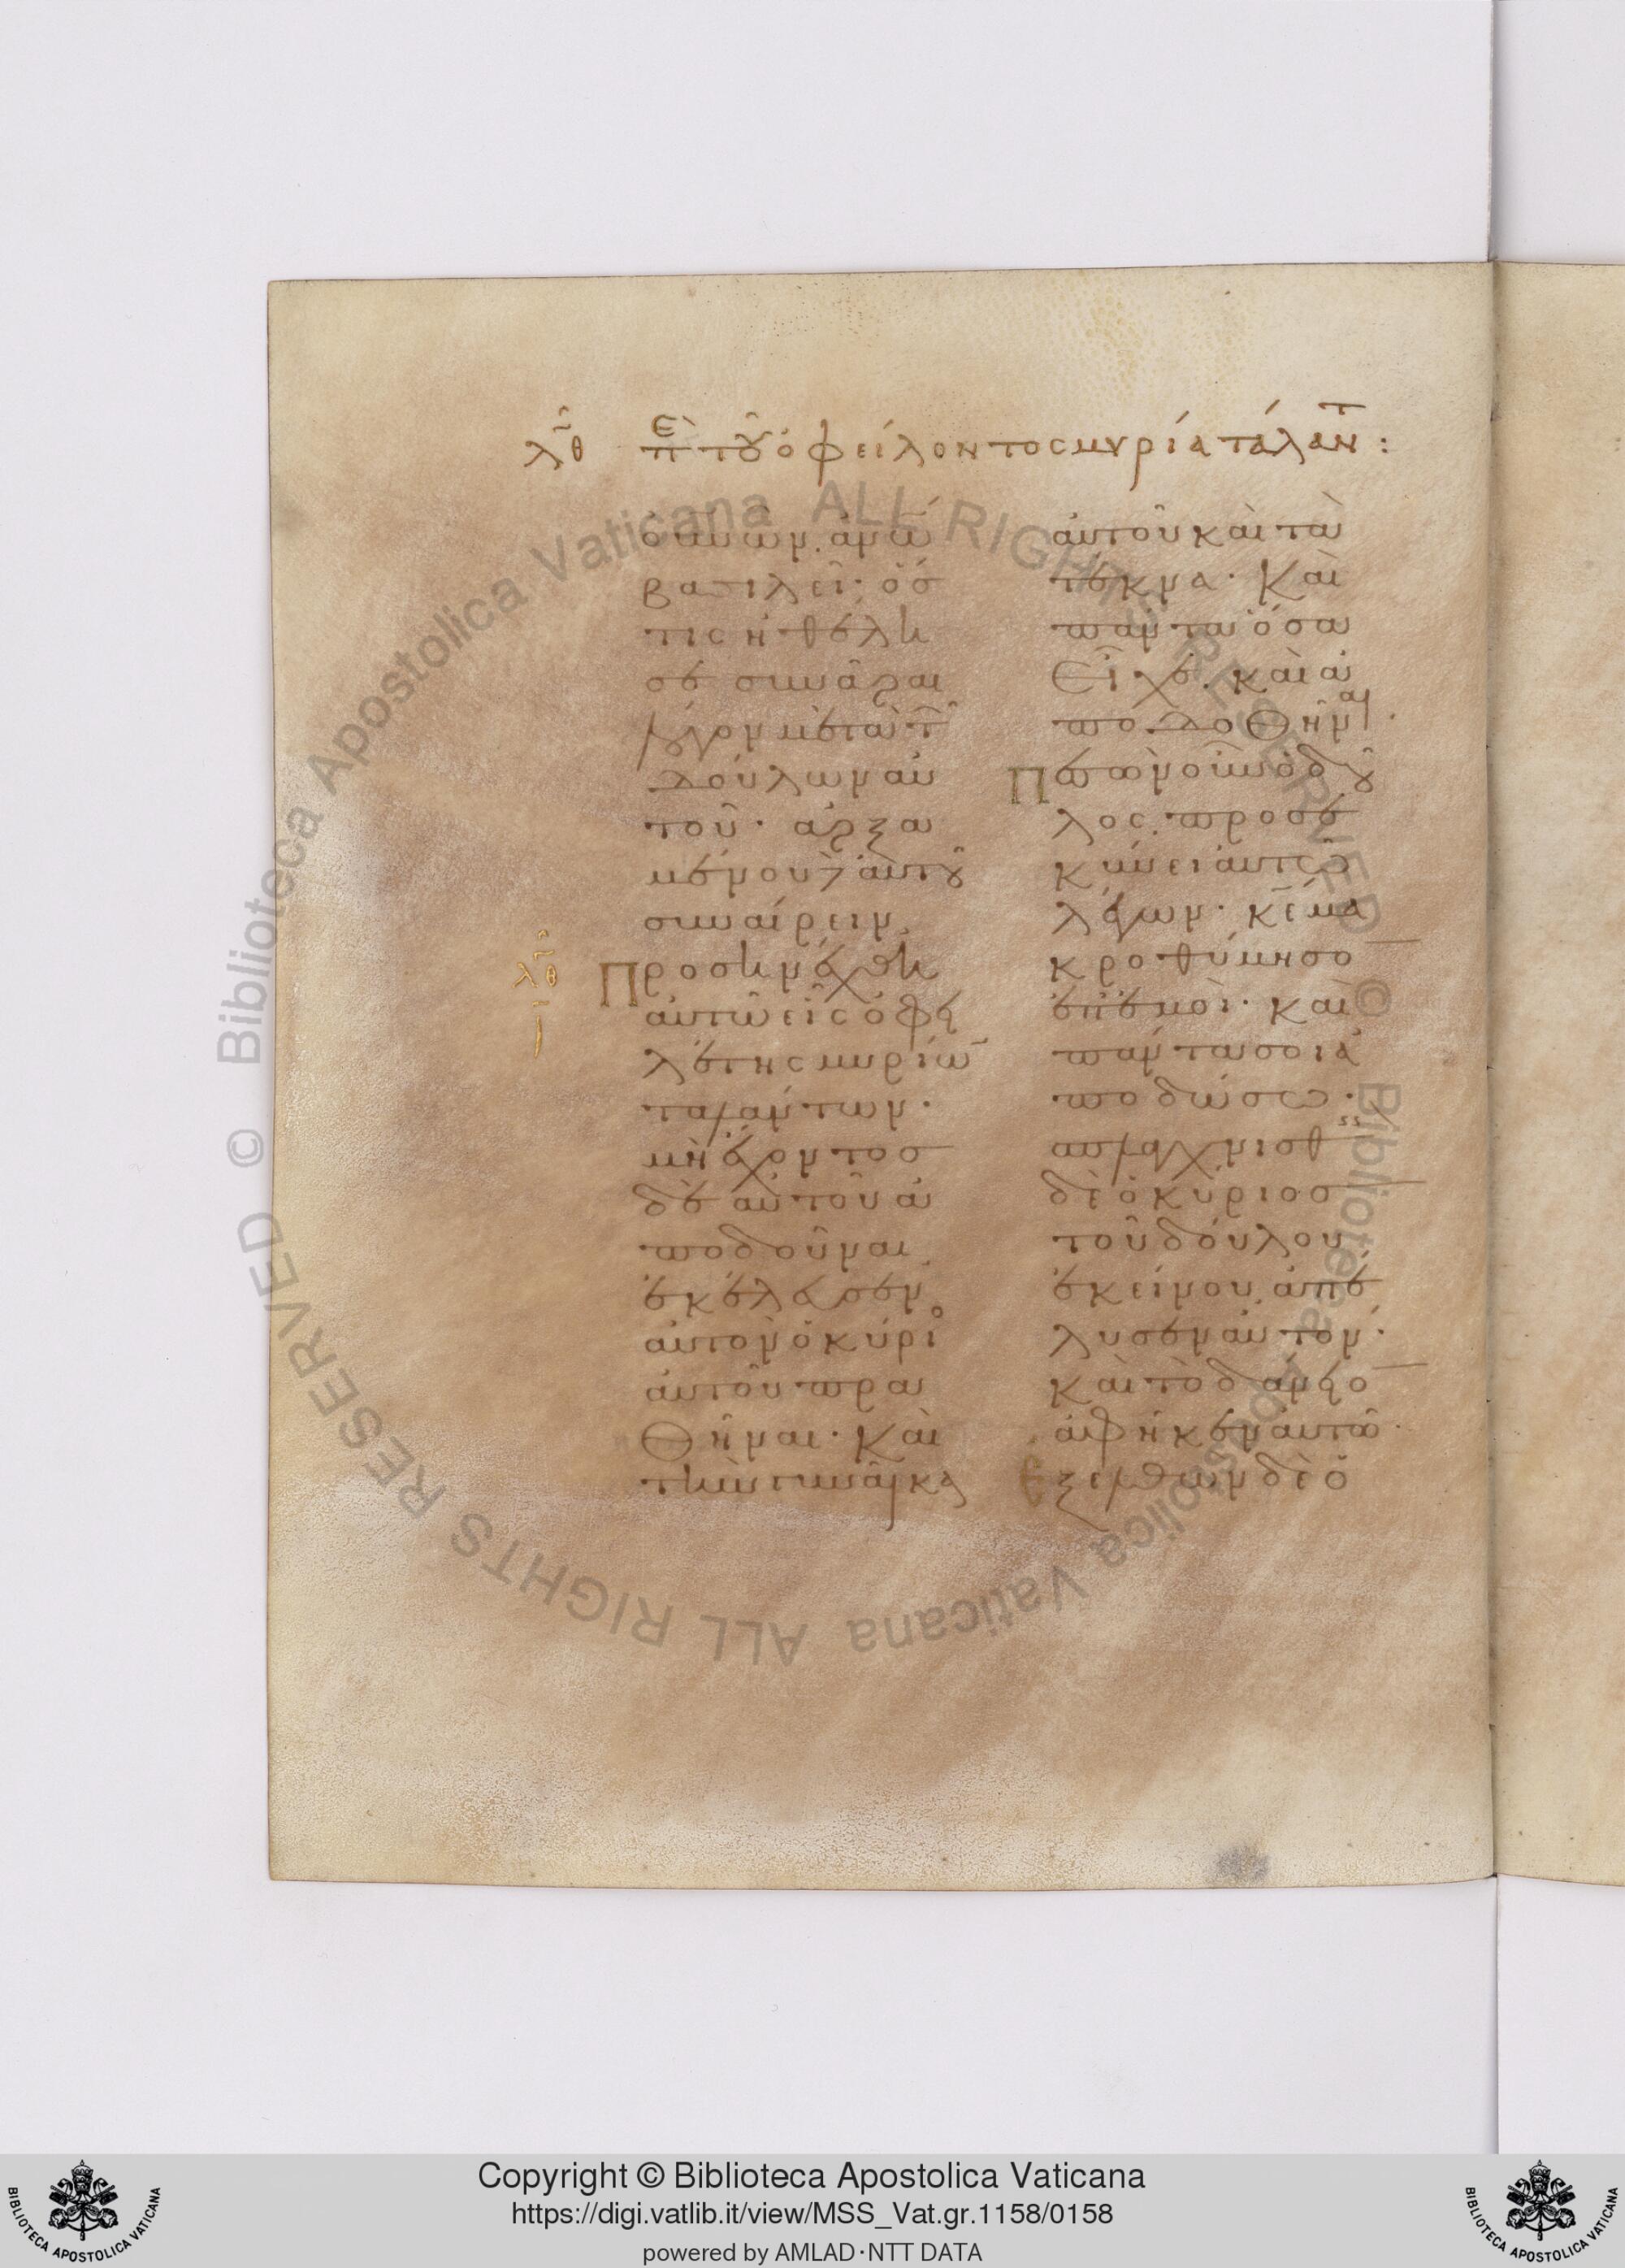 λθ Ἐπτοῦ ὀφείλοντος μυρία ταλαντ :
οὐανῶν. ἀνῶ
βασιλεῖ· ὅσ
τις ἠθέλη
σε συνᾶραι
λόγον μετὰ τ
δούλων αὐ
τοῦ· ἀρξα
μένου δὲ αὐτοῦ
συναίρειν,
Προσηνέχθη
αὐτῶ εἷς ὀφει
λέτης μυρίω
ταλάντων·
μὴ ἔχοντοσ
δὲ αὐτοῦ ἀ
ποδοῦναι,
ἐκέλευσεν
αὐτὸν ὁ κύριο
αὐτοῦ πρα
θῆναι· Καὶ
τὴν γυναῖκα
λθ
αὐτοῦ καὶ τὰ
τέκνα· Καὶ
πάντα ὅσα
Εἶχε. καὶ ἀ
ποδοθῆναι.
Πεσὼν οὖν ὁ δοῦ
λος. προσε
κύνει αὐτῶ
λέγων· κε μα
κροθύμησο
ἐπ' ἐμοὶ· καὶ
πάντα σοι ἀ
ποδώσω·
σπλαγχνισθεὶς
δὲ ὁ κύριοσ
τοῦ δούλου
ἐκείνου. ἀπέ
λυσεν αὐτόν·
Καὶ τὸ δάνειο
ἀφῆκεν αὐτῶ·
Ἐξελθὼν δὲ ὁ
Copyright © Biblioteca Apostolica Vaticana
https://digi.vatlib.it/view/MSS_Vat.gr.1158/0158
powered by AMLAD·NTT DATA
BIBLIOTECA APOSTOLICA VATICANA
BIBLIOTECA APOSTOLICA VATICANA
© Biblioteca Apostolica Vaticana ALL RIGHTS RESERVED © Biblioteca Apostolica Vaticana ALL RIGHTS RESERVED